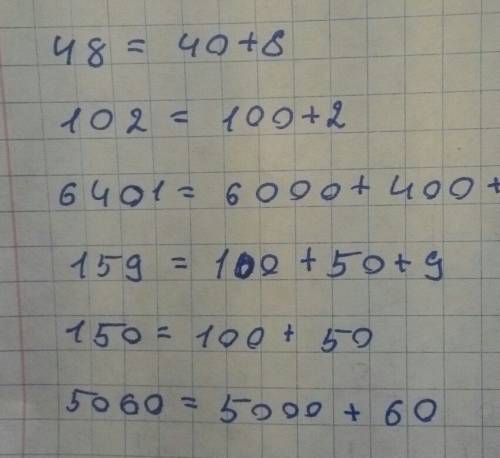 48 = 40+8
102 = 100+2
6401 = 6000+ 400 +
159 = 100 +50+9
150 = 100 + 50
5060 = 5000 + 60